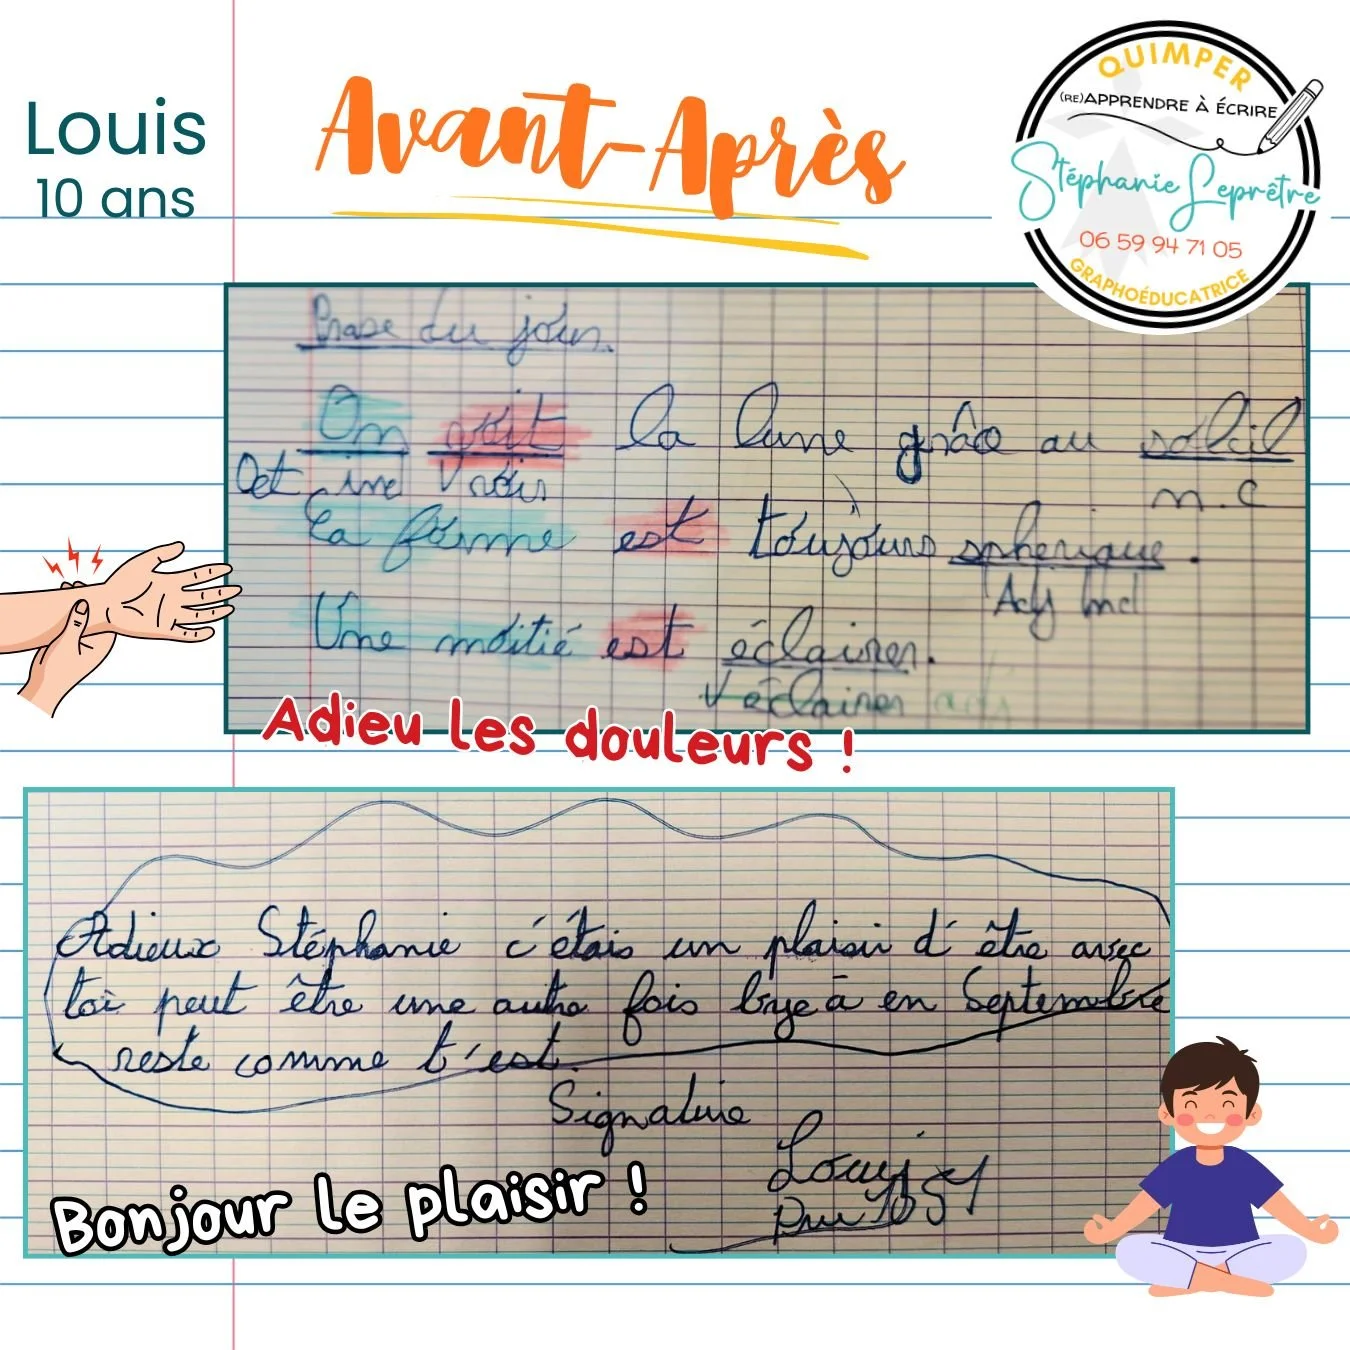 Louis
10 ans
Avant-Après
QUIMPER
(RE)APPRENDRE À ÉCRIRE
Stéphanie Leprêtre
06 59 94 71 05
GRAPHOÉDUCATRICE
Phrase du jour.
On voit la lune grâce au soleil
Det ind V voir n.c
La forme est toujours spherique.
Adj Ind
Une moitié est éclairer.
V éclairer
Adieu les douleurs !
Adieux Stéphanie c'étais un plaisir d'être avec
toi peut être une autre fois en Septembre
reste comme t'est.
Signature
Louis
Bonjour le plaisir !